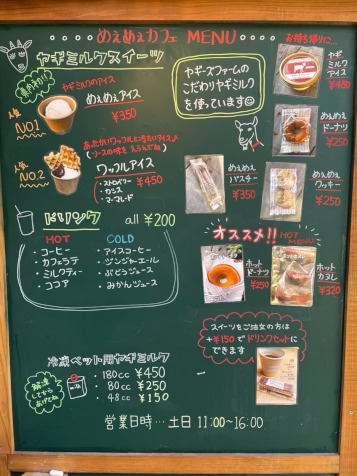 めぇめぇカフェ MENU
ヤギミルクスイーツ
人気
NO1
ヤギミルクのアイス
めぇめぇアイス
¥350
あったかいワッフルと冷たいアイス♪
(ソースの味をえらんでね)
人気
NO.2
ワッフルアイス
・ストロベリー
・カシス
・マーマレード
¥450
ヤギーズファームの
こだわりヤギミルク
を使っています
お持ち帰りに…
ヤギ
ミルク
アイス
¥450
めぇめぇ
ドーナツ
¥250
めぇめぇ
バスキー
¥350
めぇめぇ
クッキー
¥250
ドリンク all ¥200
HOT
・コーヒー
・カフェラテ
・ミルクティー
・ココア
COLD
・アイスコーヒー
・ジンジャーエール
・ぶどうジュース
・みかんジュース
オススメ!! HOT MENU
ホット
ドーナツ
¥250
ホット
カヌレ
¥320
スイーツをご注文の方は
+¥150でドリンクセットに
できます
冷凍ペット用ヤギミルク
・180cc ¥450
・80cc ¥250
・48cc ¥150
解凍
してから
あげてね
営業日時…土日 11:00~16:00